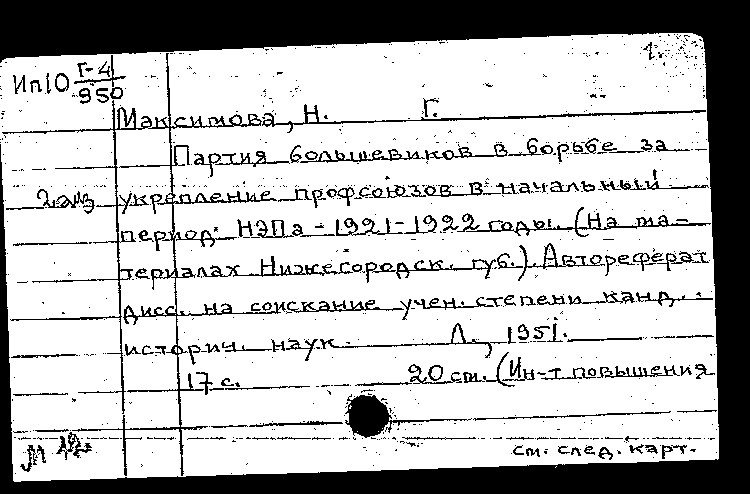 1.
Ип10 Г-4
950
Максимова, Н. Г.
Партия большевиков в борьбе за
2 экз укрепление профсоюзов в начальный
период НЭПа - 1921-1922 годы. (На ма-
териалах Нижегородск. губ.). Автореферат
дисс. на соискание учен. степени канд.
историч. наук. Л., 1951.
17 с. 20 см. (Ин-т повышения
М
см. след. карт.